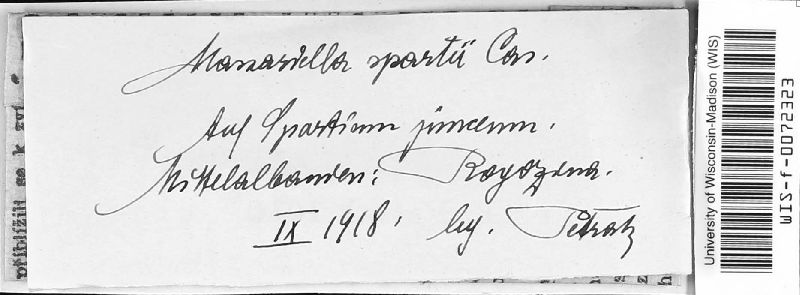 Massariella spartii Ces.
Auf Spartium junceum.
Mittelalbanien: Rogozina.
IX 1918. leg. Petrak
University of Wisconsin-Madison (WIS)
WIS-f-0072323
přiblížili se k